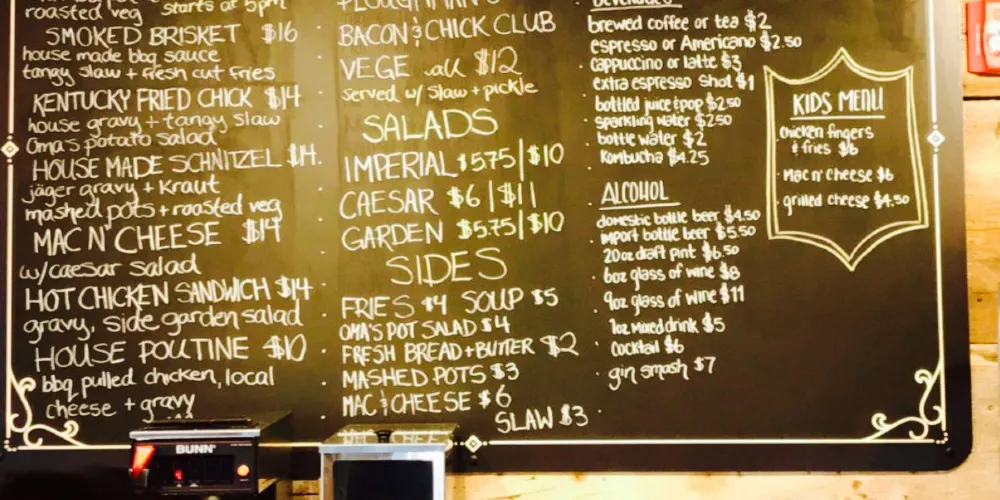 roasted veg starts at 5pm
SMOKED BRISKET $16
house made bbq sauce
tangy slaw + fresh cut fries
KENTUCKY FRIED CHICK $14
house gravy + tangy slaw
Oma's potato salad
HOUSE MADE SCHNITZEL $14
jäger gravy + Kraut
mashed pots + roasted veg
MAC N' CHEESE $14
w/caesar salad
HOT CHICKEN SANDWICH $14
gravy, side garden salad
HOUSE POUTINE $10
bbq pulled chicken, local
cheese + gravy
PLOUGHMAN'S
BACON & CHICK CLUB
VEGE all $12
served w/ slaw + pickle
SALADS
IMPERIAL $5.75|$10
CAESAR $6|$11
GARDEN $5.75|$10
SIDES
FRIES $4 SOUP $5
OMA'S POT SALAD $4
FRESH BREAD + BUTTER $2
MASHED POTS $3
MAC & CHEESE $6
SLAW $3
BEVERAGES
brewed coffee or tea $2
espresso or Americano $2.50
cappuccino or latte $3
extra espresso shot $1
bottled juice & pop $2.50
sparkling water $2.50
bottle water $2
Kombucha $4.25
ALCOHOL
domestic bottle beer $4.50
import bottle beer $5.50
20oz draft pint $6.50
6oz glass of wine $8
9oz glass of wine $11
1oz mixed drink $5
cocktail $6
gin smash $7
KIDS MENU
chicken fingers
& fries $6
mac n' cheese $6
grilled cheese $4.50
BUNN